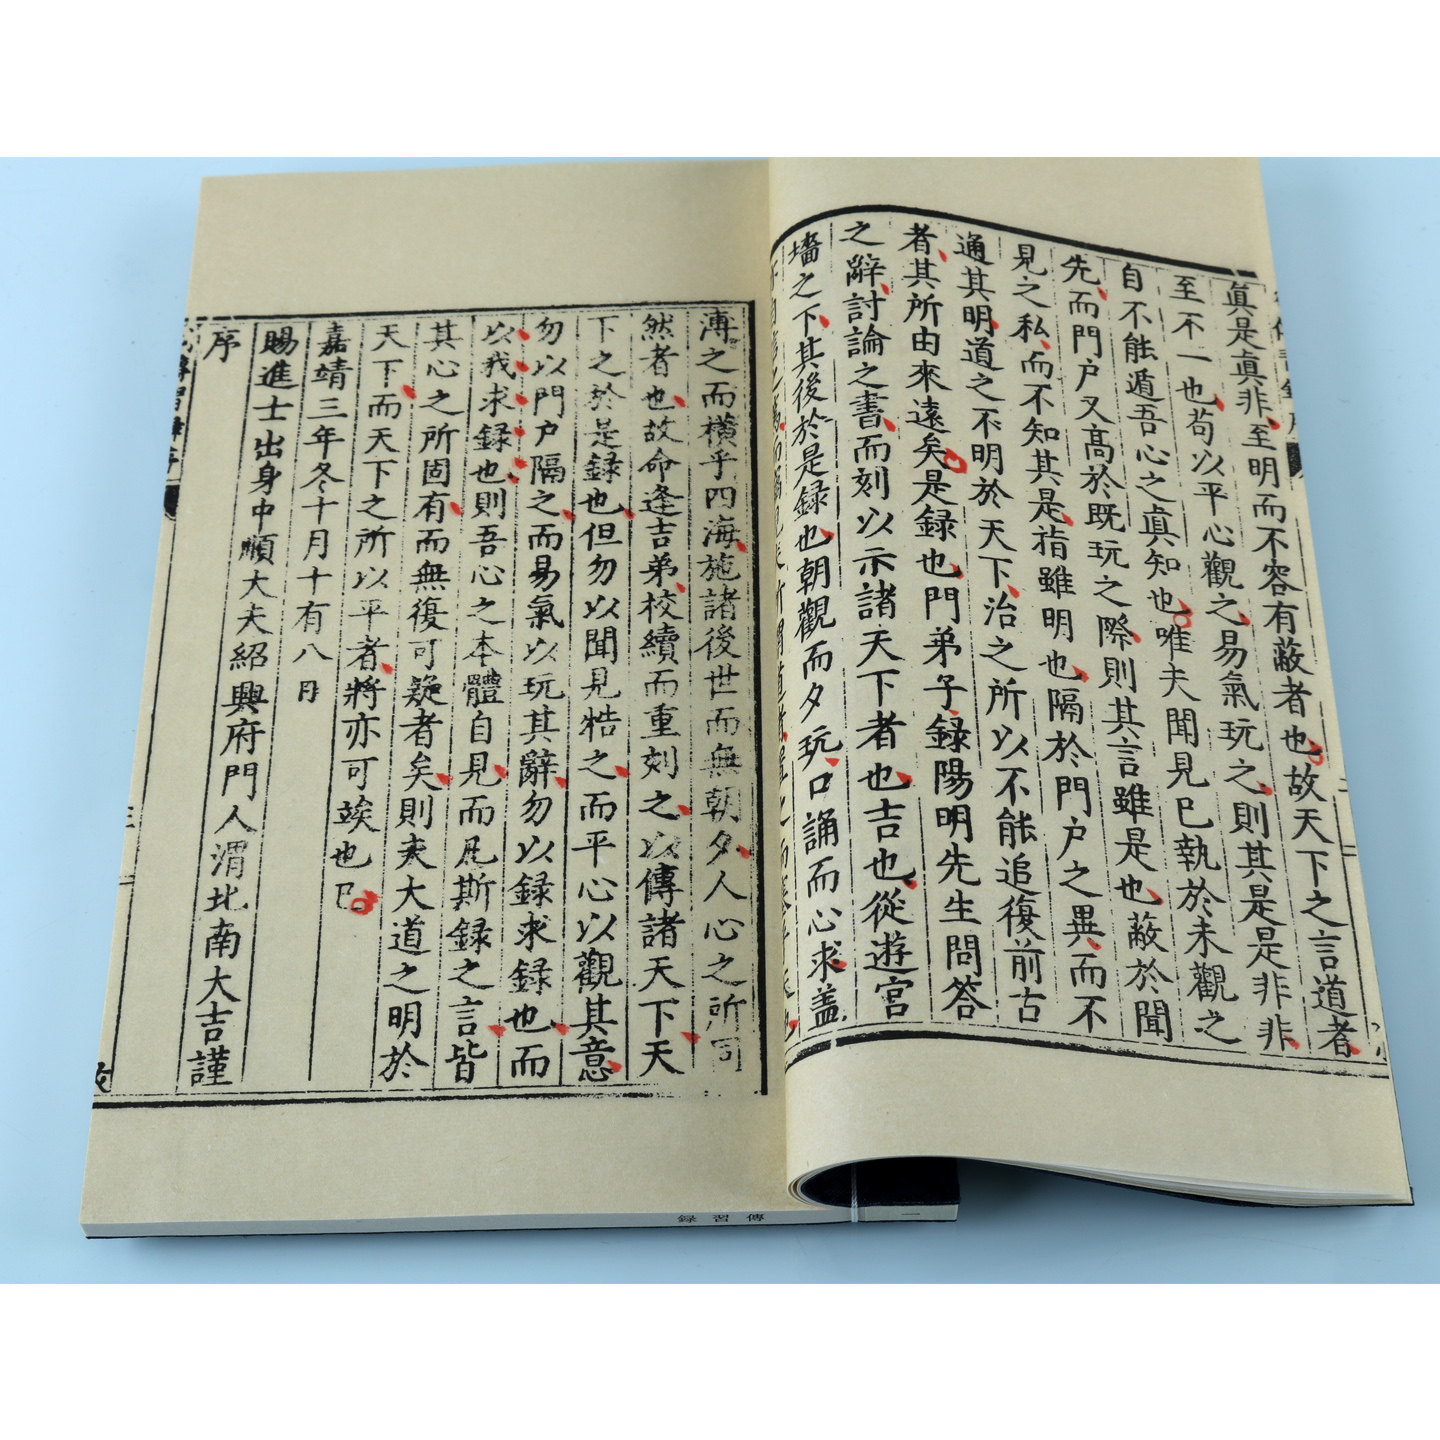 眞是眞非至明而不容有蔽者也故天下之言道者
至不一也苟以平心觀之易氣玩之則其是是非非
自不能遁吾心之眞知也唯夫聞見已執於未觀之
先而門戶又高於既玩之際則其言雖是也蔽於聞
見之私而不知其是指雖明也隔於門戶之異而不
通其明道之不明於天下治之所以不能追復前古
者其所由來遠矣是録也門弟子録陽明先生問答
之辭討論之書而刻以示諸天下者也吉也從遊宮
墻之下其後於是録也朝觀而夕玩口誦而心求蓋
溥之而橫乎四海施諸後世而無朝夕人心之所同
然者也故命逢吉弟校續而重刻之以傳諸天下天
下之於是録也但勿以聞見梏之而平心以觀其意
勿以門戶隔之而易氣以玩其辭勿以録求録也而
以我求録也則吾心之本體自見而凡斯録之言皆
其心之所固有而無復可疑者矣則夫大道之明於
天下而天下之所以平者將亦可竢也已
嘉靖三年冬十月十有八日
賜進士出身中順大夫紹興府門人渭北南大吉謹
序
傳習録
一